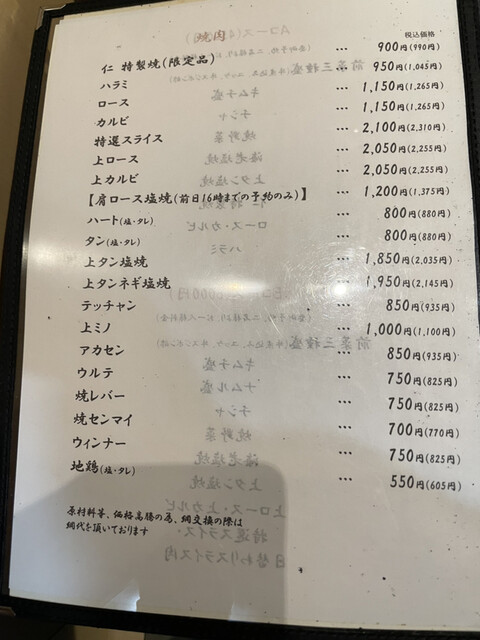 焼肉
税込価格
仁 特製焼(限定品) … 900円(990円)
ハラミ … 950円(1,045円)
ロース … 1,150円(1,265円)
カルビ … 1,150円(1,265円)
特選スライス … 2,100円(2,310円)
上ロース … 2,050円(2,255円)
上カルビ … 2,050円(2,255円)
【肩ロース塩焼(前日16時までの予約のみ)】 … 1,200円(1,375円)
ハート(塩・タレ) … 800円(880円)
タン(塩・タレ) … 800円(880円)
上タン塩焼 … 1,850円(2,035円)
上タンネギ塩焼 … 1,950円(2,145円)
テッチャン … 850円(935円)
上ミノ … 1,000円(1,100円)
アカセン … 850円(935円)
ウルテ … 750円(825円)
焼レバー … 750円(825円)
焼センマイ … 700円(770円)
ウィンナー … 750円(825円)
地鶏(塩・タレ) … 550円(605円)
原材料等、価格高騰の為、網交換の際は
網代を頂いております